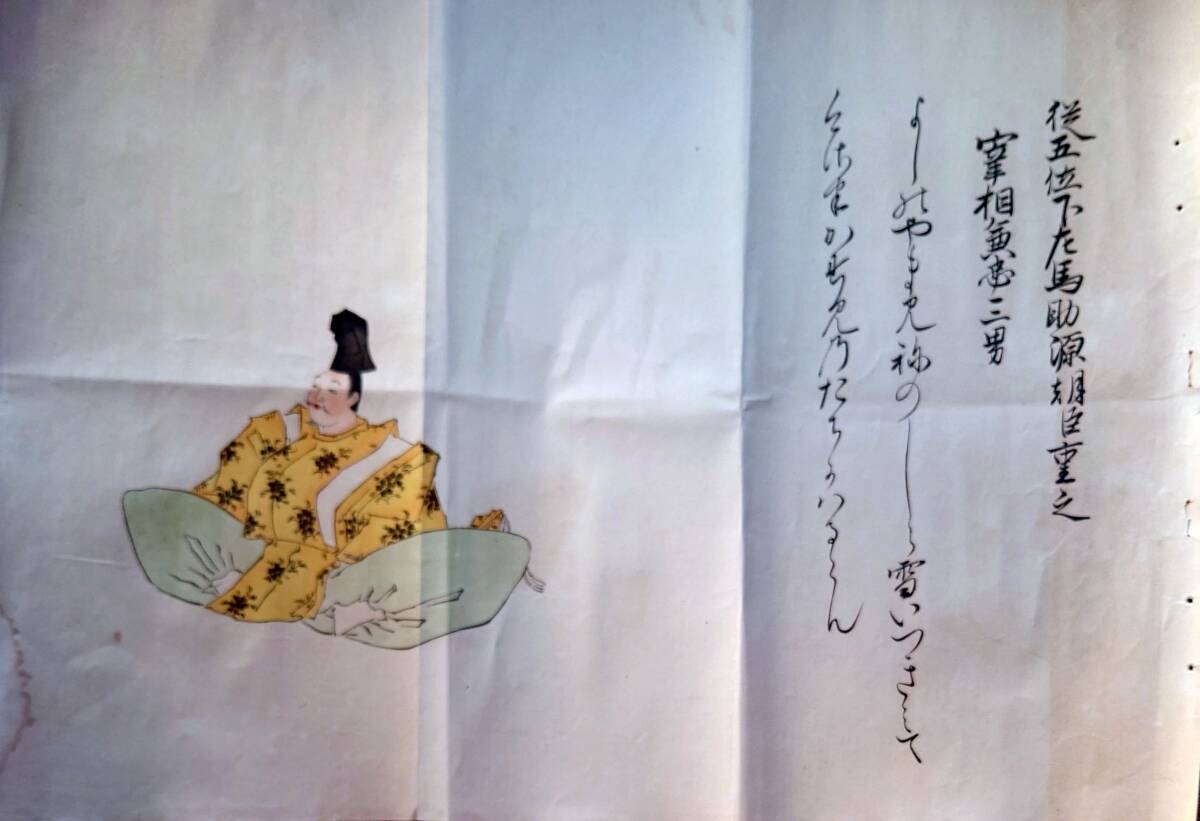 従五位下左馬助源朝臣重之
宰相兼忠三男
よしのやま見祢のしら雪いつきえて
けさはかす見乃たちかハるらん